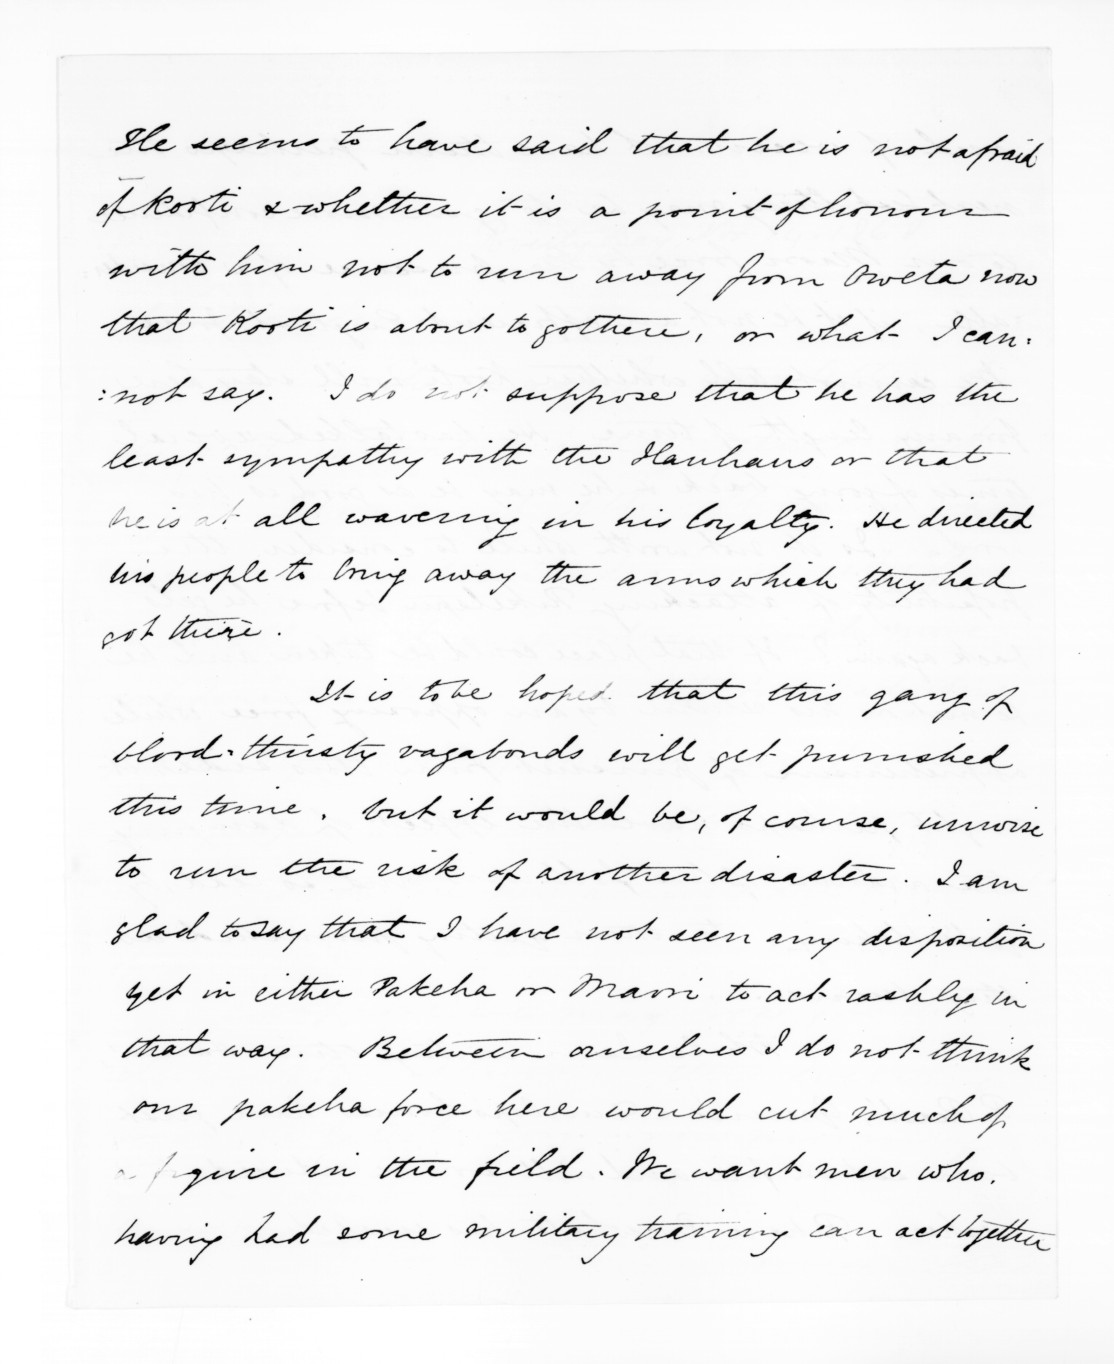 He seems to have said that he is not afraid
of Kooti & whether it is a point of honour
with him not to run away from Oweta now
that Kooti is about to go there, or what I can:
:not say. I do not suppose that he has the
least sympathy with the Hauhaus or that
he is at all wavering in his loyalty. He directed
his people to bring away the arms which they had
got there.
It is to be hoped that this gang of
blood-thirsty vagabonds will get punished
this time, but it would be, of course, unwise
to run the risk of another disaster. I am
glad to say that I have not seen any disposition
yet in either Pakeha or Maori to act rashly in
that way. Between ourselves I do not think
our pakeha force here would cut much of
a figure in the field. We want men who,
having had some military training can act together